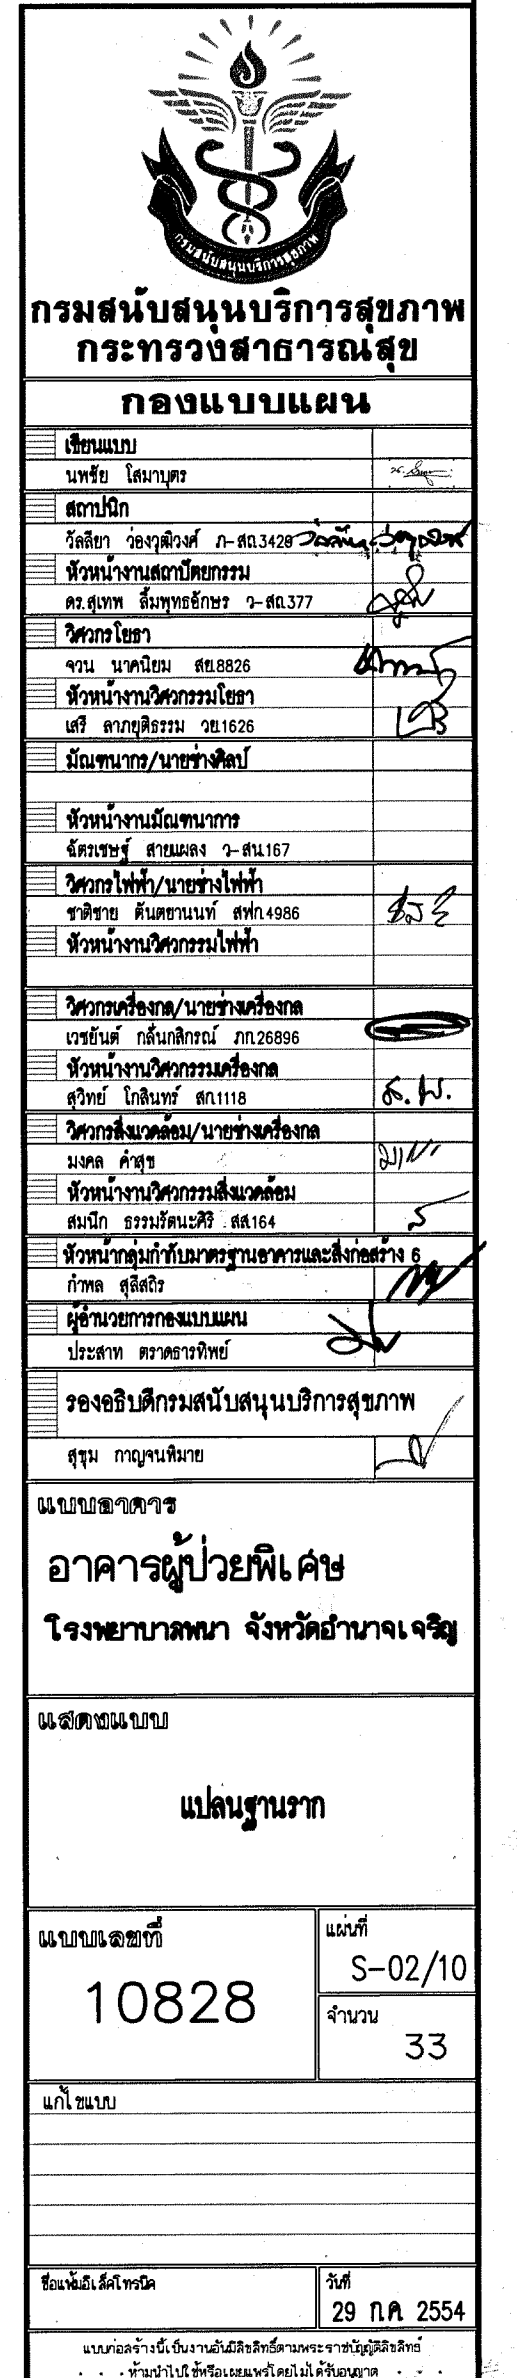 กรมสนับสนุนบริการสุขภาพ
กรมสนับสนุนบริการสุขภาพ
กระทรวงสาธารณสุข
กองแบบแผน
เขียนแบบ
นพชัย โสมาบุตร
สถาปนิก
วัลลียา ว่องวุฒิวงศ์ ภ-สถ.3428
หัวหน้างานสถาปัตยกรรม
ดร.สุเทพ ลิ้มพุทธอักษร ว-สถ.377
วิศวกรโยธา
จวน นาคนิยม สย.8826
หัวหน้างานวิศวกรรมโยธา
เสรี ลาภยุติธรรม วย.1626
มัณฑนากร/นายช่างศิลป์
หัวหน้างานมัณฑนาการ
ฉัตรเชษฐ์ สายแผลง ว-สน.167
วิศวกรไฟฟ้า/นายช่างไฟฟ้า
ชาติชาย ตันตยานนท์ สฟก.4986
หัวหน้างานวิศวกรรมไฟฟ้า
วิศวกรเครื่องกล/นายช่างเครื่องกล
เวชยันต์ กลั่นกสิกรณ์ ภก.26896
หัวหน้างานวิศวกรรมเครื่องกล
สุวิทย์ โกสินทร์ สก.1118
วิศวกรสิ่งแวดล้อม/นายช่างเครื่องกล
มงคล คำสุข
หัวหน้างานวิศวกรรมสิ่งแวดล้อม
สมนึก ธรรมรัตนะศิริ สส.164
หัวหน้ากลุ่มกำกับมาตรฐานอาคารและสิ่งก่อสร้าง 6
กำพล สุลีสถิร
ผู้อำนวยการกองแบบแผน
ประสาท ตราดธารทิพย์
รองอธิบดีกรมสนับสนุนบริการสุขภาพ
สุขุม กาญจนพิมาย
แบบอาคาร
อาคารผู้ป่วยพิเศษ
โรงพยาบาลพนา จังหวัดอำนาจเจริญ
แสดงแบบ
แปลนฐานราก
แบบเลขที่
10828
แผ่นที่
S-02/10
จำนวน
33
แก้ไขแบบ
ชื่อแฟ้มอิเล็คโทรนิค
วันที่
29 ก.ค. 2554
แบบก่อสร้างนี้เป็นงานอันมีลิขสิทธิ์ตามพระราชบัญญัติลิขสิทธิ์
ห้ามนำไปใช้หรือเผยแพร่โดยไม่ได้รับอนุญาต